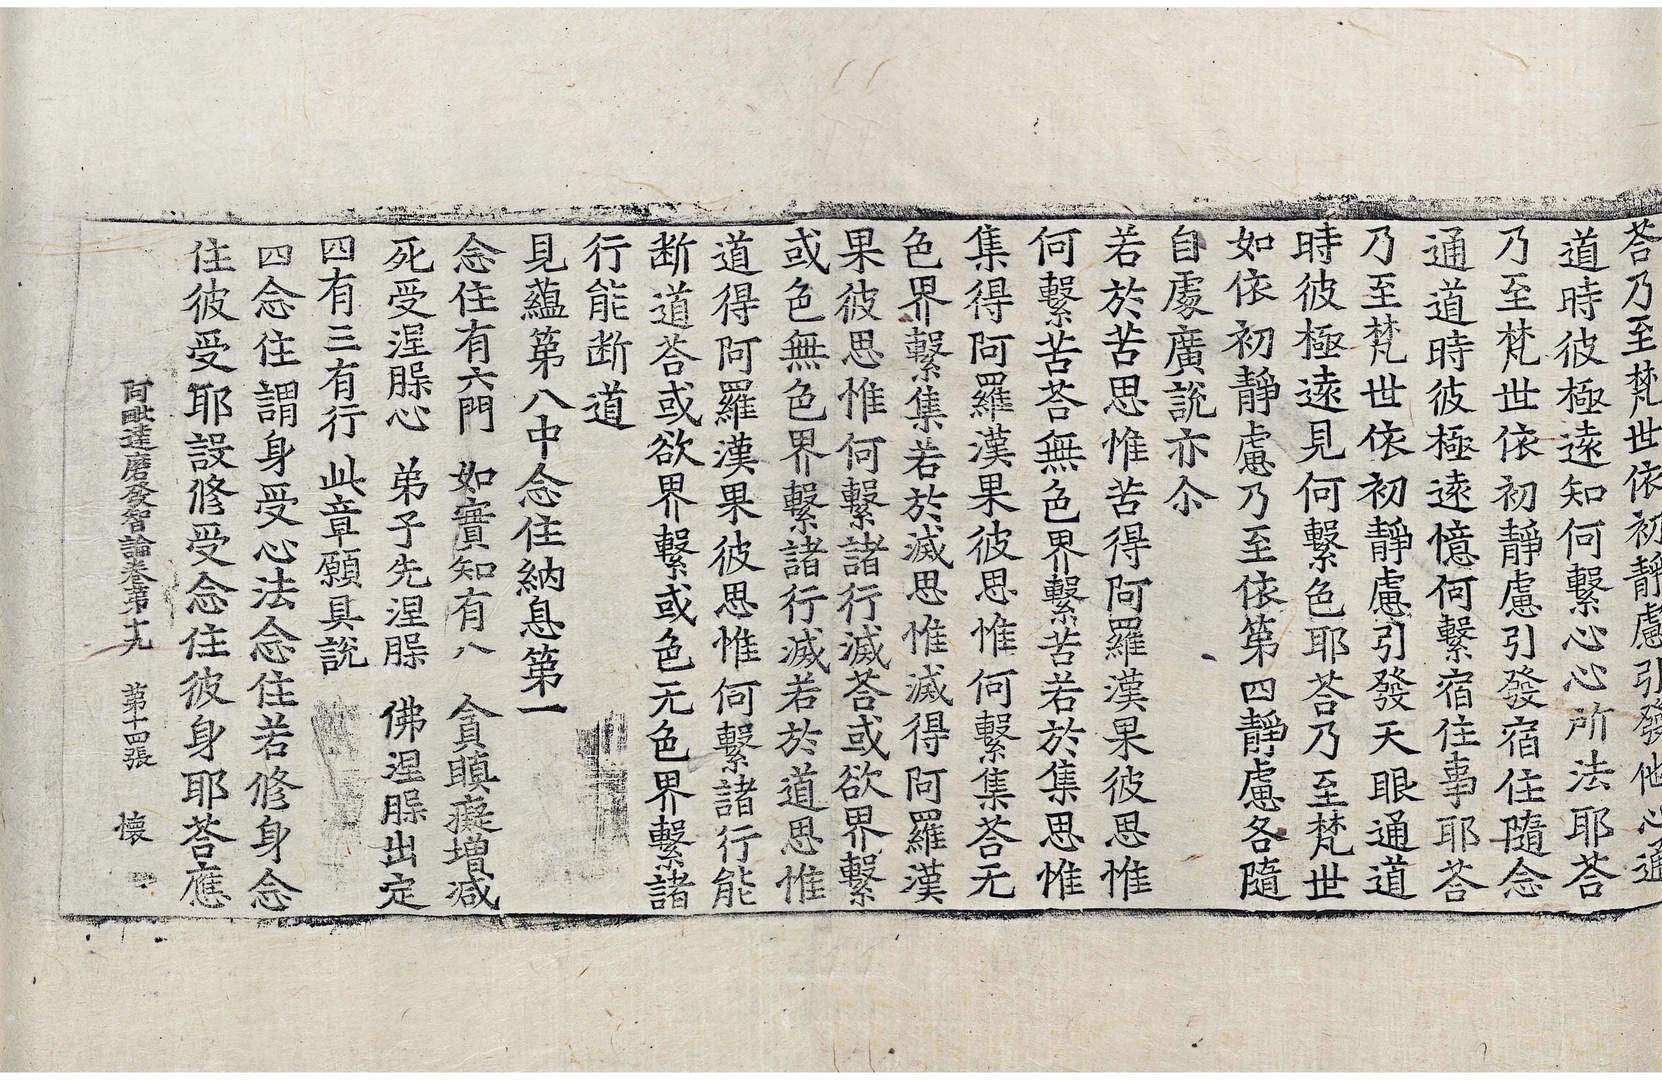 荅乃至梵世依初靜慮引發他心通
道時彼極遠知何繫心心所法耶荅
乃至梵世依初靜慮引發宿住隨念
通道時彼極遠憶何繫宿住事耶荅
乃至梵世依初靜慮引發天眼通道
時彼極遠見何繫色耶荅乃至梵世
如依初靜慮乃至依第四靜慮各隨
自處廣說亦尒
若於苦思惟苦得阿羅漢果彼思惟
何繫苦荅無色界繫苦若於集思惟
集得阿羅漢果彼思惟何繫集荅无
色界繫集若於滅思惟滅得阿羅漢
果彼思惟何繫諸行滅荅或欲界繫
或色無色界繫諸行滅若於道思惟
道得阿羅漢果彼思惟何繫諸行能
断道荅或欲界繫或色无色界繫諸
行能断道
見蘊第八中念住納息第一
念住有六門 如實知有八 貪瞋癡增减
死受涅槃心 弟子先涅槃 佛涅槃出定
四有三有行 此章願具說
四念住謂身受心法念住若修身念
住彼受耶設修受念住彼身耶荅應
阿毗達磨發智論卷第十九 第十四張 懷